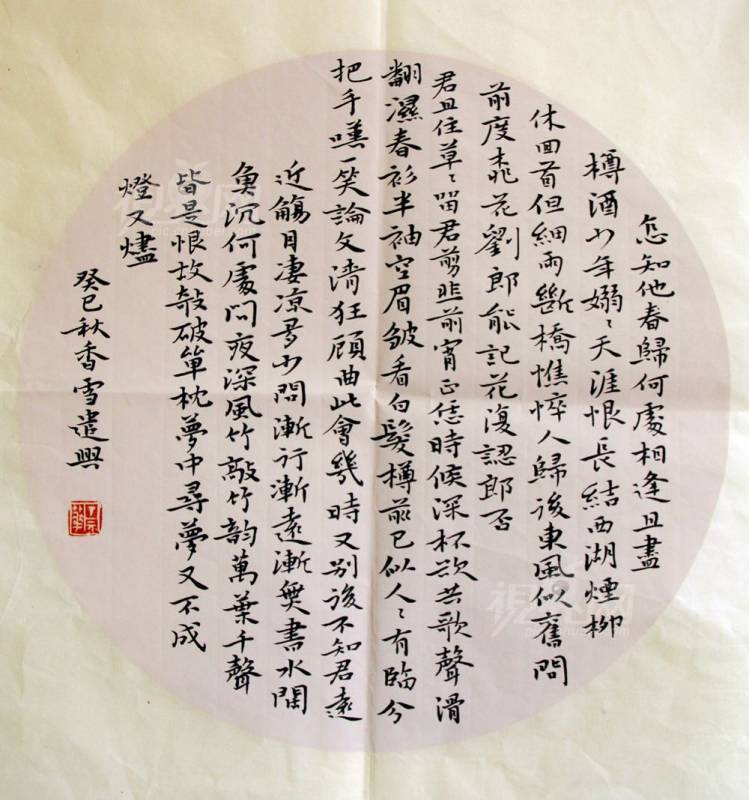 怎知他春歸何處相逢且盡
樽酒少年嫋〻天涯恨長結西湖煙柳
休回首但細雨斷橋憔悴人歸後東風似舊問
前度桃花劉郎能記花復認郎否
君且住草〻留君剪韭前宵正恁時候深杯欲共歌聲滑
翻濕春衫半袖空眉皺看白髮樽前已似人〻有臨分
把手嘆一笑論文清狂顧曲此會幾時又別後不知君遠
近觸目凄凉多少問漸行漸遠漸無書水闊
魚沉何處問夜深風竹敲竹韵萬葉千聲
皆是恨故敧破單枕夢中尋夢又不成
燈又燼
癸巳秋香雪遣興